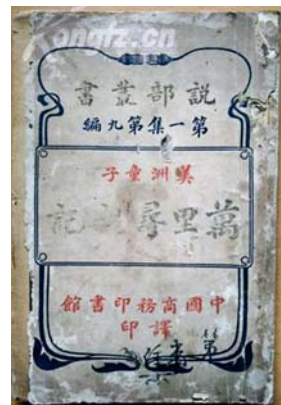 Kongfz.cn
說部叢書
第一集第九編
美洲童子
萬里尋親記
中國商務印書館
譯印